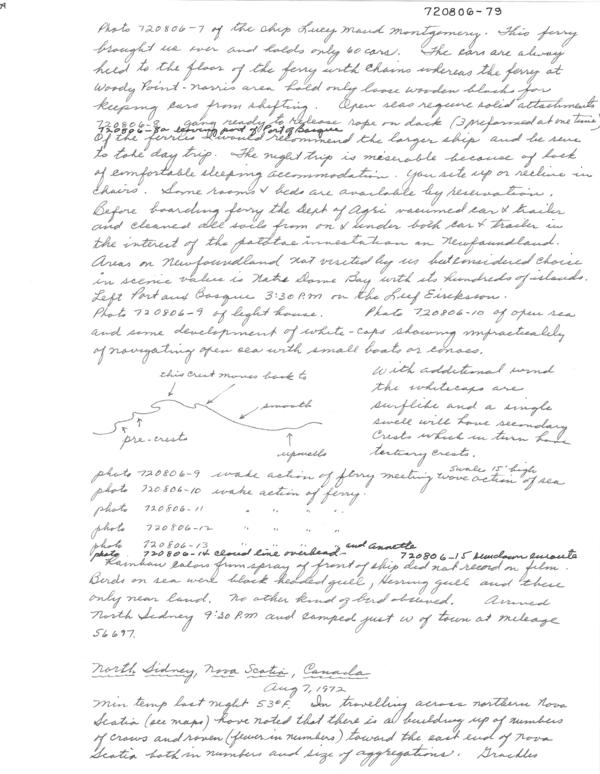 720806-79
Photo 720806-7 of the ship Lucy Maud Montgomery. This ferry
brought us over and holds only 60 cars. The cars are alway
held to the floor of the ferry with chains whereas the ferry at
Woody Point-Norris area hold only loose wooden blocks for
keeping cars from shifting. Open seas require solid attachments
720806-8 gang ready to release rope on dock (3 preformed at one time)
720806-8a leaving port of Port of Basque
Of the ferries I would recommend the larger ship and be sure
to take day trip. The night trip is miserable because of lack
of comfortable sleeping accommodation. You site up or recline in
chairs. Some rooms & beds are available by reservation.
Before boarding ferry the Dept of Agri vacumed car & trailer
and cleaned all soils from on & under both car & trailer in
the interest of the investation on Newfoundland.
Areas on Newfoundland not visited by us but considered choice
in scenic value is Notre Dame Bay with its hundreds of islands.
Left Port aux Basque 3:30 P.M on the Leif Eireksson.
Photo 720806-9 of light house. Photo 720806-10 of open sea
and some development of white-caps showing impracticality
of navigating open sea with small boats or canoes.
this crest moves back to
smooth
pre-crests
upwells
With additional wind
the whitecaps are
surflike and a single
swell will have secondary
crests which in turn have
tertiary crests.
swale 15' high
photo 720806-9 wake action of ferry meeting wove action of sea
photo 720806-10 wake action of ferry.
photo 720806-11 " " " "
photo 720806-12 " " " "
photo 720806-13 " " " " and Annette
photo 720806-14 cloud line overhead 720806-15 sundown enroute
Rainbow colors from spray of front of ship did not record on film.
Birds on sea were black headed gull, Herring gull and these
only near land. No other kind of bird observed. Arrived
North Sidney 9:30 P.M and camped just W of town at mileage
56697.
North Sidney, Nova Scotia, Canada
Aug 7, 1972
Min temp last night 53°F. In travelling across northern Nova
Scotia (see maps) have noted that there is a building up of numbers
of crows and raven (fewer in numbers) toward the east end of Nova
Scotia both in numbers and size of aggregations. Grackles